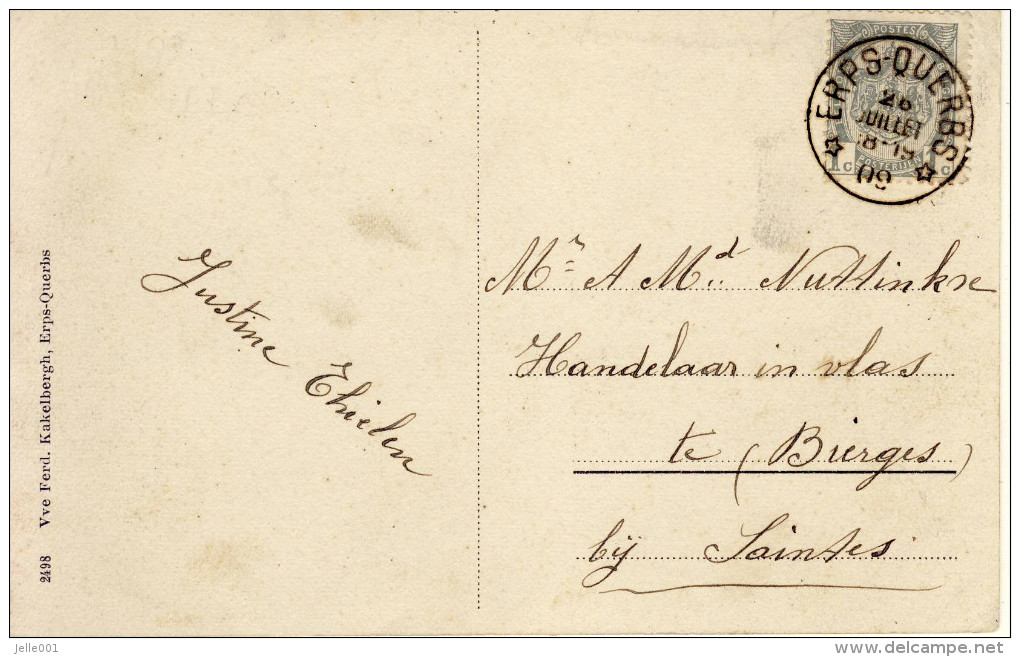 POSTES
ERPS-QUERBS
26
JUILLET
18-19
09
POSTERIJEN
1c 1c
Mr A Md. Nuttinkse
Handelaar in vlas
te (Bierges)
bij Saintes
Justine Thielen
2498 Vve Ferd. Kakelbergh, Erps-Querbs
jelle001
delcampe.net